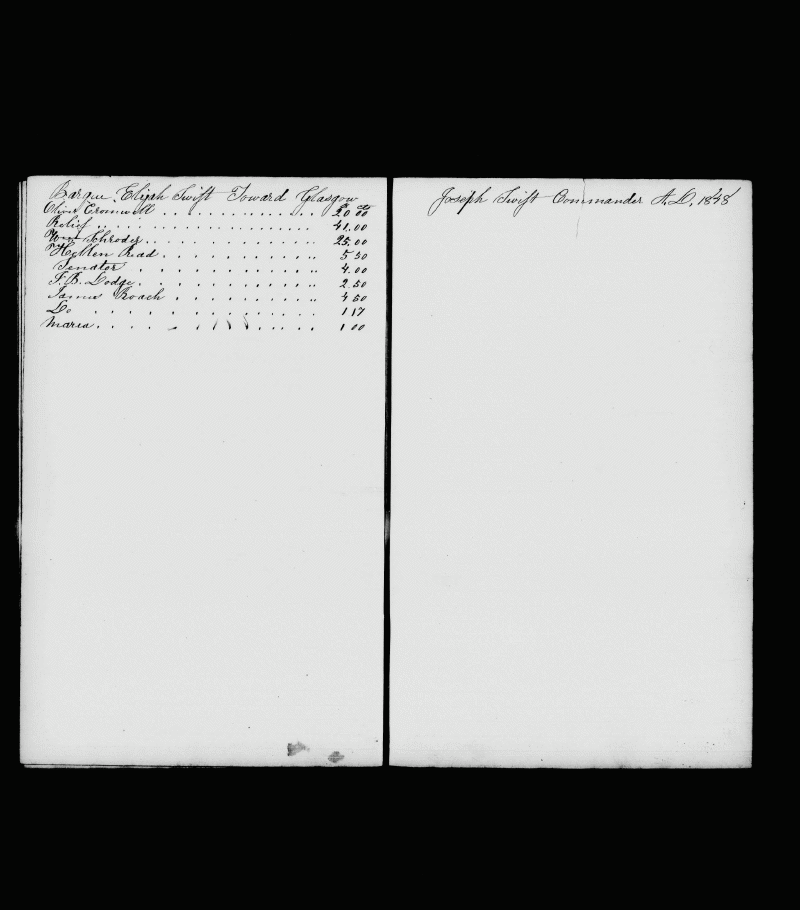 Barque Elijah Swift Toward Glasgow
$ cts
Oliver Cromwell . . . . . . . . . . . . . . 20 00
Relief . . . . . . . . . . . . . . . . . . . 41.00
Schroder . . . . . . . . . . . . . . 25.00
Hellen Read . . . . . . . . . . . . . 5 50
Senator . . . . . . . . . . . . . . . 4.00
F. B. Dodge . . . . . . . . . . . . . . 2 50
James Roach . . . . . . . . . . . . . 4 50
Do . . . . . . . . . . . . . . . . . 1 17
Marea . . . . . . . . . . . . . 1 00
Joseph Swift Commander A.D, 1848